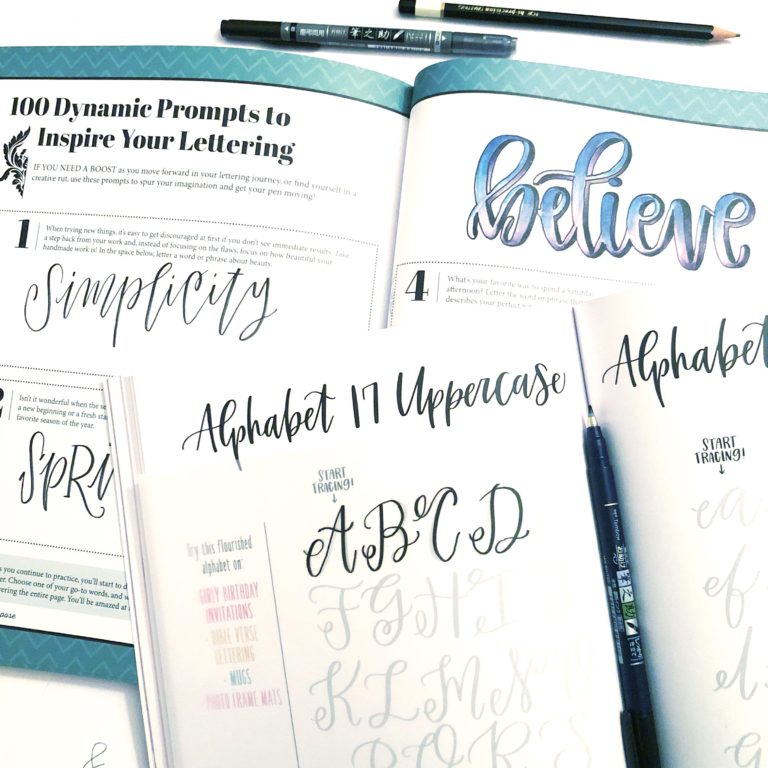 100 Dynamic Prompts to
Inspire Your Lettering
IF YOU NEED A BOOST as you move forward in your lettering journey, or find yourself in a
creative rut, use these prompts to spur your imagination and get your pen moving!
1
When trying new things, it's easy to get discouraged at first if you don't see immediate results. Take
a step back from your work and, instead of focusing on the flaws, focus on how beautiful your
handmade work is! In the space below, letter a word or phrase about beauty.
Simplicity
Isn't it wonderful when the se
a new beginning or a fresh sta
favorite season of the year.
SpRi
s you continue to practice, you'll start to d
er. Choose one of your go-to words, and w
vering the entire page. You'll be amazed at
pose
believe
4
What's your favorite way to spend a Saturday
afternoon? Letter the word or phrase that
describes your perfect
Alphabet 17 Uppercase
START
TRACING!
Try this flourished
alphabet on:
GIRLY BIRTHDAY
INVITATIONS
• BIBLE VERSE
LETTERING
• MUGS
• PHOTO FRAME MATS
A B C D
F G H I
K L M N O
P Q R S
Alphabet
START
TRACING!
ea
ef
d
g
筆之助
筆之助